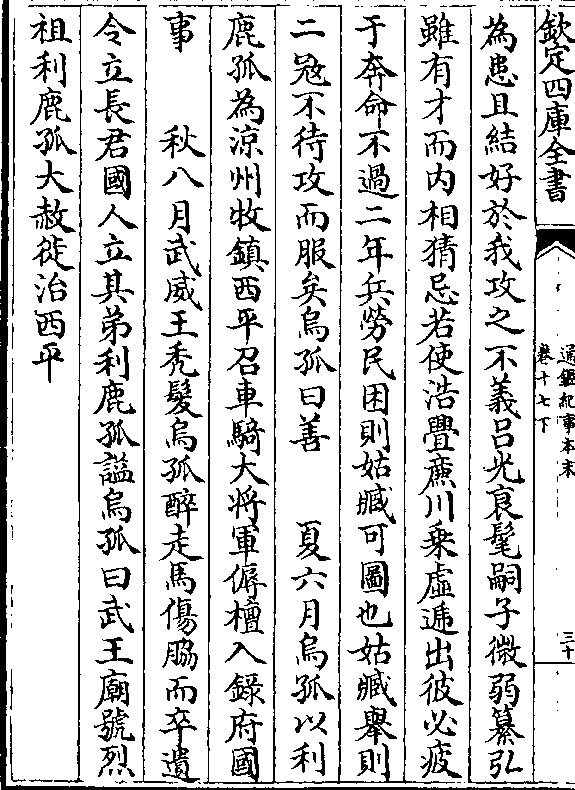 欽定四庫全書
通鑑紀事本末
卷十七下
三十
為患且結好於我攻之不義吕光衰髦嗣子微弱纂弘
雖有才而内相猜忌若使浩亹廉川乗虚遞出彼必疲
于奔命不過二年兵勞民困則姑臧可圖也姑臧舉則
二冦不待攻而服矣烏孤曰善　夏六月烏孤以利
鹿孤為涼州牧鎮西平召車騎大将軍傉檀入録府國
事　秋八月武威王秃髮烏孤醉走馬傷脇而卒遺
令立長君國人立其弟利鹿孤諡烏孤曰武王廟號烈
祖利鹿孤大赦徙治西平